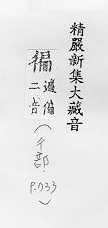 精嚴新集大藏音
徧 二音
(彳部.
P.733)